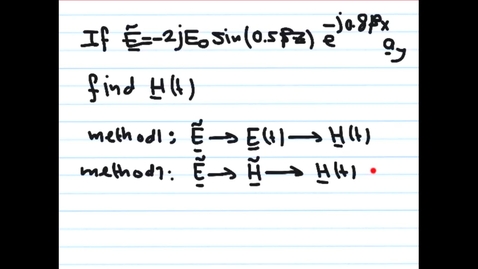 If Ẽ=-2jE₀sin(0.5βz) e^-j0.8βx a_y
find H(t)
method1: Ẽ → E(t) → H(t)
method2: Ẽ → H̃ → H(t)